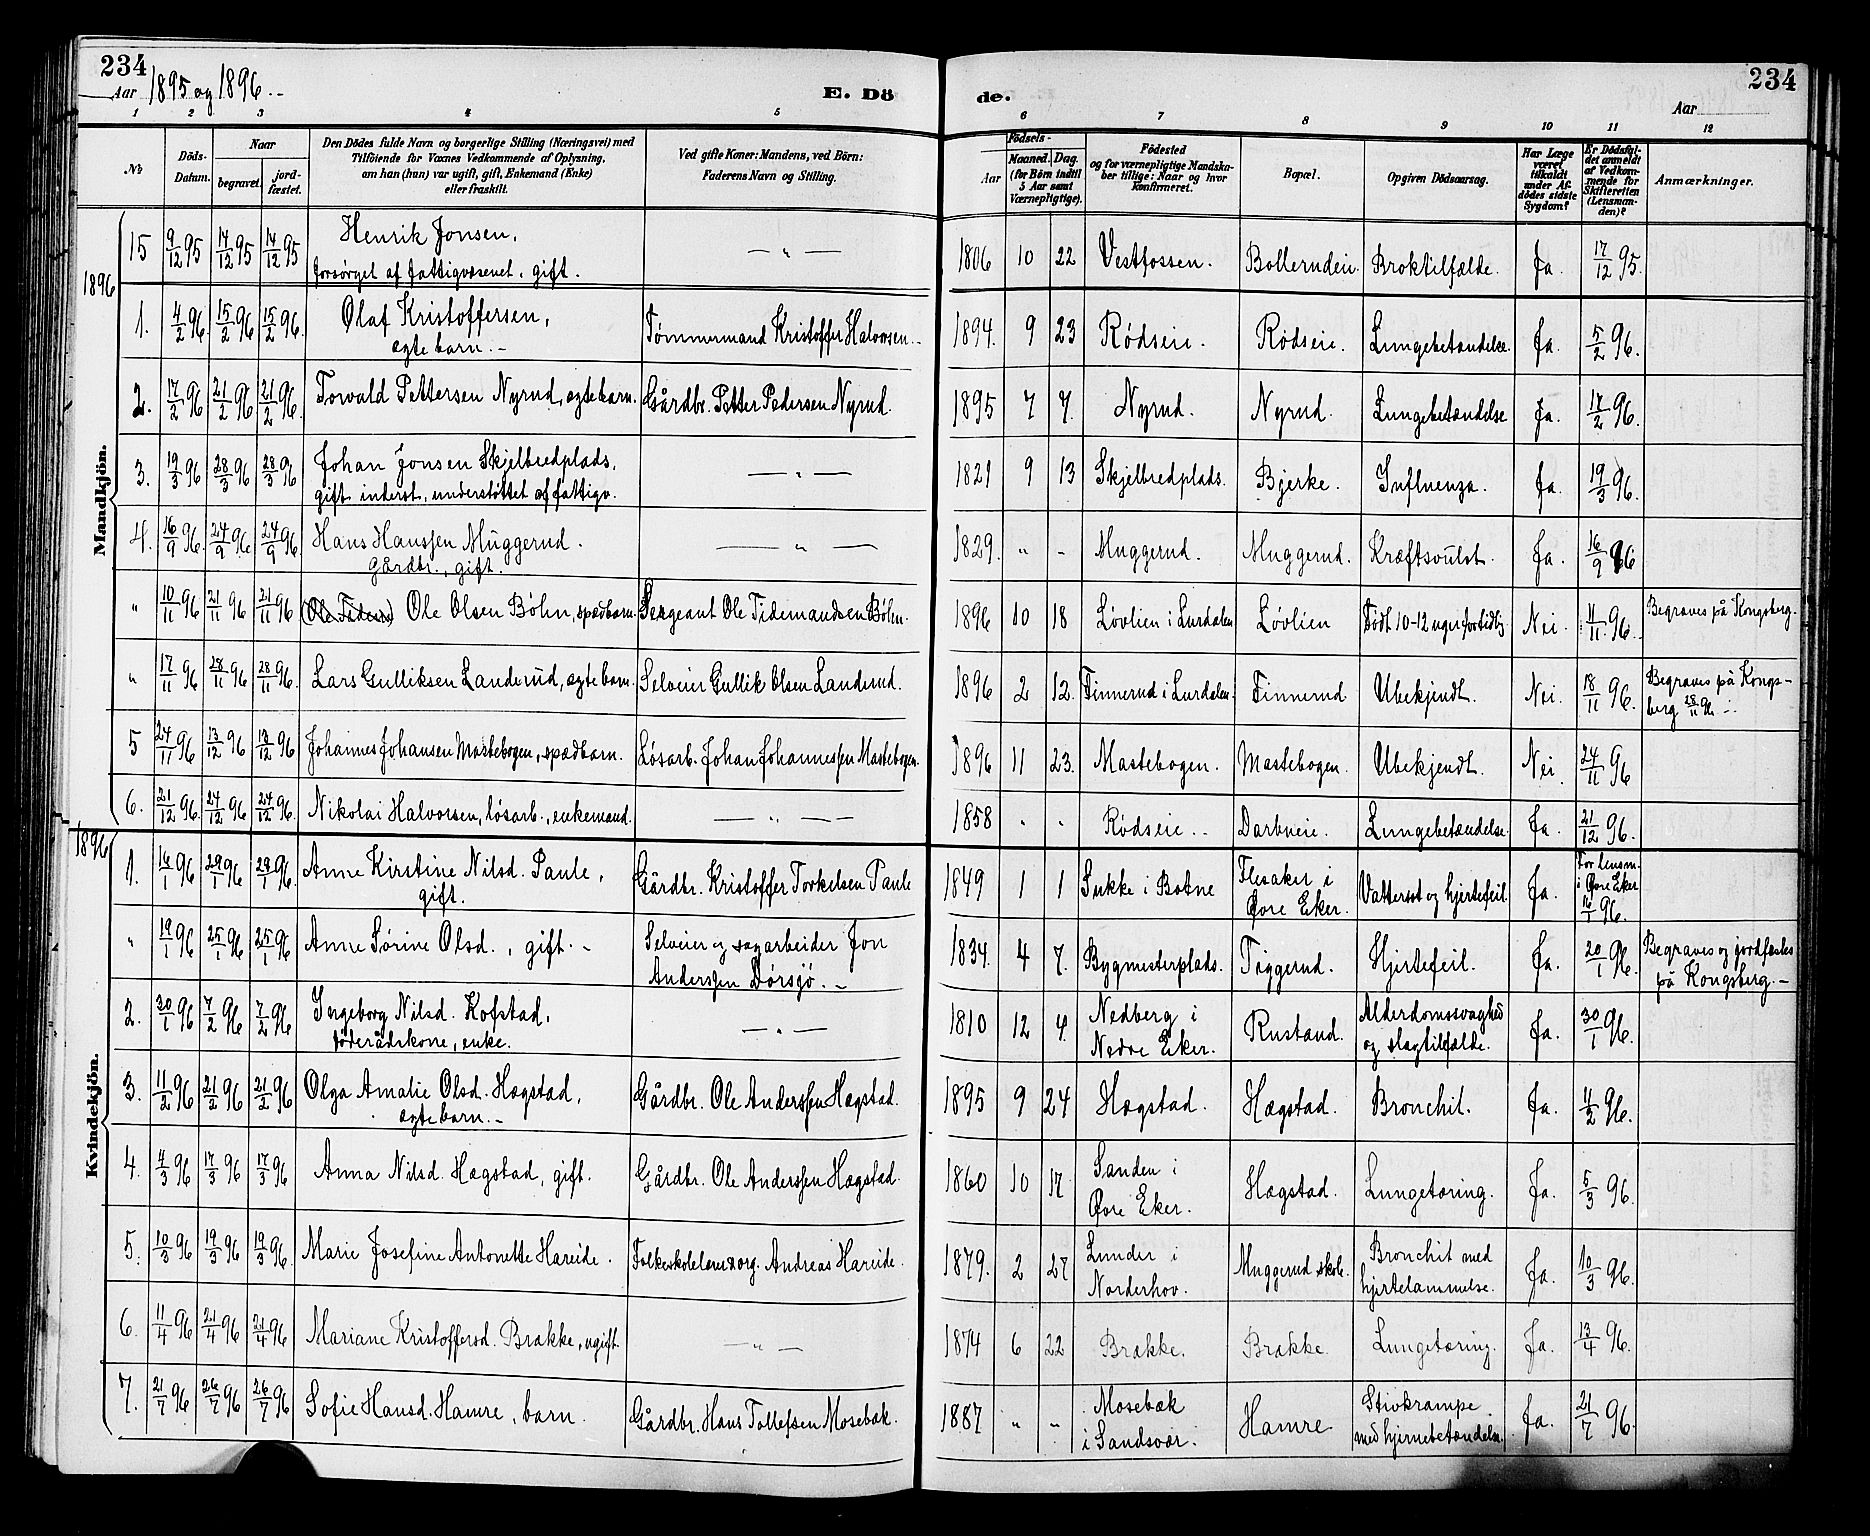 234
Aar 1895 og 1896.
E. Dö
de.
Aar
234
1 2 3 4 5 6 7 8 9 10 11 12
No.
Döds-Datum.
Naar
begravet.
jord-fæstet.
Den Dödes fulde Navn og borgerlige Stilling (Næringsvei) med
Tilföiende for Voxnes Vedkommende af Oplysning,
om han (hun) var ugift, gift, Enkemand (Enke)
eller fraskilt.
Ved gifte Koner: Mandens, ved Börn:
Faderens Navn og Stilling.
Födsels-
Aar
Maaned.
Dag.
(for Börn indtil
5 Aar samt
Værnepligtige).
Födested
og for værnepligtige Mandska-
ber tillige: Naar og hvor
Konfirmeret.
Bopæl.
Opgiven Dödsaarsag.
Har Læge
været
tilkaldt
under Af-
dödes sidste
Sygdom?
Er Dödsfal-
det anmeldt
af Vedkom-
mende for
Skifteretten
(Lensman-
den)?
Anmærkninger.
15 9/12 95 14/12 95 14/12 95 Henrik Jonsen, — „ — 1806 10 22 Vestfossen. Bollerudeie. Broktilfælde. Ja. 17/12 95.
forsörget af fattigvæsenet, gift.
1896
Mandkjön.
1. 4/2 96 15/2 96 15/2 96. Olaf Kristoffersen, Tømmermand Kristoffer Halvorsen. 1894. 9 23 Rødseie. Rødseie. Lungebetændelse. Ja. 5/2 96.
ægte barn.
2. 17/2 96 21/2 96 21/2 96. Torvald Pettersen Nyrud, ægte barn. Gårdbr. Petter Pedersen Nyrud. 1895 7 7. Nyrud. Nyrud. Lungebetændelse Ja. 17/2 96.
3. 19/3 96 28/3 96 28/3 96 Johan Jonsen Skjelbredplads, — „ — 1821 9 13 Skjelbredplads. Bjerke. Influenza. Ja. 19/3 96.
gift inderst, understöttet af fattigv.
4. 16/9 96. 24/9 96 24/9 96. Hans Hanssen Muggerud. — „ — 1829. „ - Muggerud. Muggerud. Kræftsvulst. Ja. 16/9 96
Gårdbr., gift.
„ 10/11 96 21/11 96 21/11 96 Ole Olsen Böhn, spædbarn. Sergeant Ole Tidemandsen Böhn. 1896 10 18 Løvlien i Lurdalen Løvlien Födt 10-12 uger fortidlig Nei. 11/11 96. Begraves på Kongsberg.
„ 17/11 96 28/11 96 28/11 96. Lars Gulliksen Landerud, ægte barn. Selveier Gullik Olsen Landerud. 1896 2 12. Finnerud i Lurdalen. Finnerud Ubekjendt. Nei. 18/11 96. Begraves på Kongs-
berg 28/11 96
5 24/11 96 13/12 96 13/12 96 Johannes Johansen Mastebogen, spædbarn. Løsarb. Johan Johannessen Mastebogen. 1896 11 23. Mastebogen. Mastebogen. Ubekjendt. Nei. 24/11 96
6. 21/12 96. 24/12 96 24/12 96. Nikolai Halvorsen, løsarb., enkemand. — „ — 1858 „ „ Rødseie. Darbueie. Lungebetændelse Ja. 21/12 96.
1896
Kvindekjön.
1. 14/1 96 29/1 96 29/1 96 Anne Kirstine Nilsd. Paule, Gårdbr. Kristoffer Torkelsen Paule 1849 1 1 Sukke i Botne Flesaker i Vattersot og hjertefeil Ja. For lensm.
gift. Øvre Eker. i Øvre Eker
96.
„ 19/1 96 25/1 96 25/1 96 Anne Sørine Olsd., gift. Selveier og sagarbeider Jon 1834. 4 7. Bygmesterplads. Tiggerud. Hjertefeil. Ja. 20/1 96. Begraves og jordfæstes
Anderssen Dørsjø. på Kongsberg.
2. 30/1 96 7/2 96 7/2 96 Ingeborg Nilsd. Kofstad, — „ — 1810 12 4. Nedberg i Rustand. Alderdomssvaghed Ja. 30/1 96.
föderådskone, enke. Nedre Eker. og slagtilfælde.
3. 11/2 96 21/2 96 21/2 96 Olga Amalie Olsd. Hægstad, Gårdbr. Ole Anderssen Hægstad. 1895 9 24 Hægstad. Hægstad. Bronchit. Ja. 96.
ægte barn.
4. 4/3 96 17/3 96 17/3 96 Anna Nilsd. Hægstad, gift. Gårdbr. Ole Anderssen Hægstad. 1860 10 17 Sanden i Hægstad. Lungetæring. Ja. 5/3 96.
Øvre Eker.
5. 10/3 96 19/3 96 19/3 96. Marie Josefine Antonette Hareide. Folkeskolelærer & org. Andreas Hareide. 1879. 2 27 Lunder i Muggerud skole. Bronchit med Ja. 10/3 96.
Norderhov. hjertelammelse.
6. 11/4 96 21/4 96 21/4 96 Mariane Kristoffersd. Brække, ugift — „ — 1874 6 22 Brække. Brække. Lungetæring. Ja. 13/4 96.
7. 21/7 96 26/7 96 26/7 96 Sofie Hansd. Hamre, barn. Gårdbr. Hans Tollefsen Mosebæk. 1887 „ „ Mosebæk Hamre Stivkrampe Ja. 21/7 96.
i Sandsvær. med hjernebetændelse.